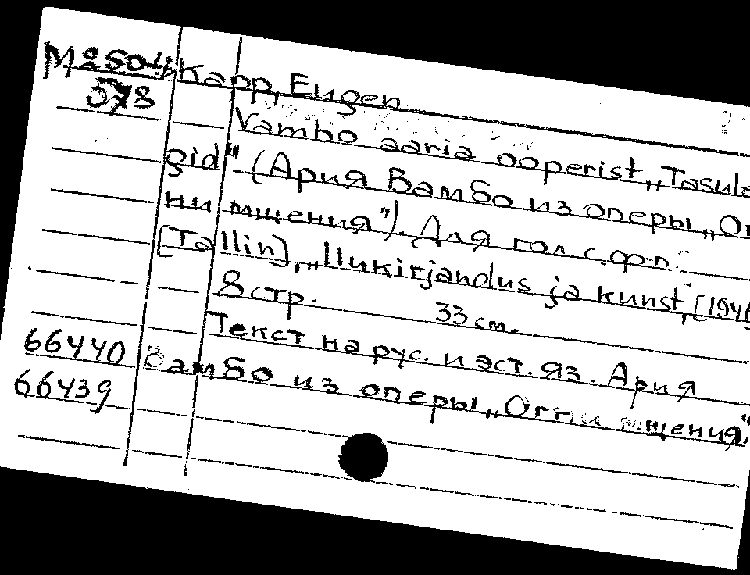 М250-4 Kapp, Eugen
373
Vambo aaria ooperist „Tasule
gid". (Ария Вамбо из оперы „Ог
ни мщения"). Для гол. с ф-п.
[Tallin], „Ilukirjandus ja kunst, [1946
8 стр. 33 см.
Текст на рус. и эст. яз. Ария
66440 Вамбо из оперы „Огни мщения".
66439